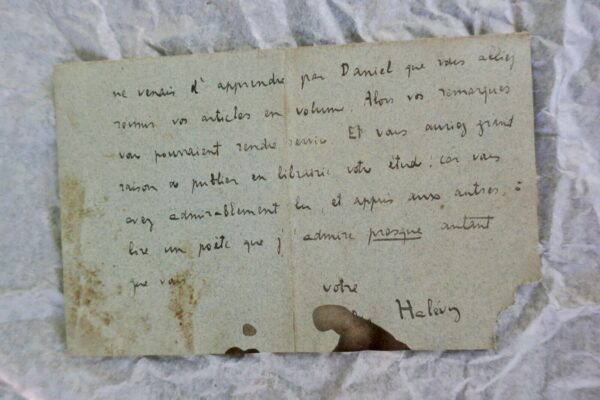 ne venais d'apprendre par Daniel que vous alliez
réunir vos articles en volume. Alors vos remarques
pourraient rendre service. Et vous auriez grand
raison de publier en librairie votre étude; car vous
avez admirablement lu, et appris aux autres, à
lire un poète que j'admire presque autant
que vous
votre
Halévy